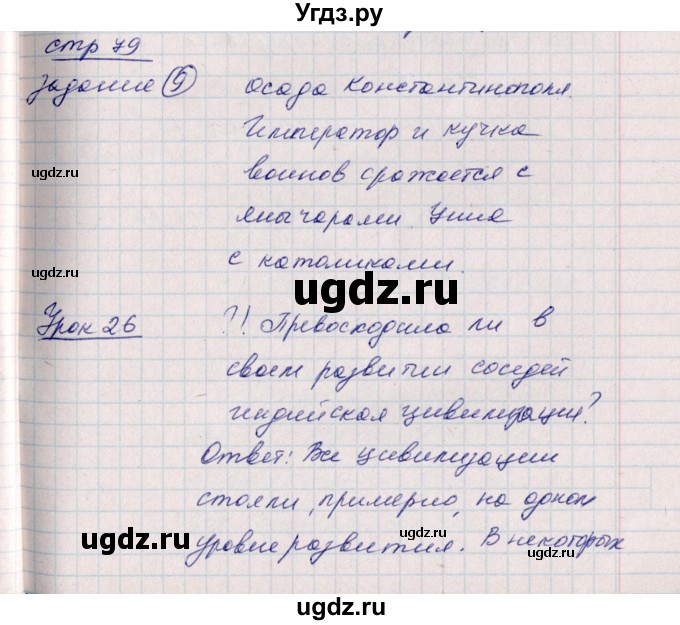 Угдз.ру
стр 79
задание 9 осада Константинополя.
Император и кучка
воинов сражается с
янычарами Уния
с католиками.
Урок 26 ?! Превосходила ли в
своем развитии соседей
индийская цивилизация?
Ответ: Все цивилизации
стояли, примерно, на одном
уровне развития. В некоторых
ugdz.ru
ugdz.ru
ugdz.ru
ugdz.ru
ugdz.ru
ugdz.ru
ugdz.ru
ugdz.ru
ugdz.ru